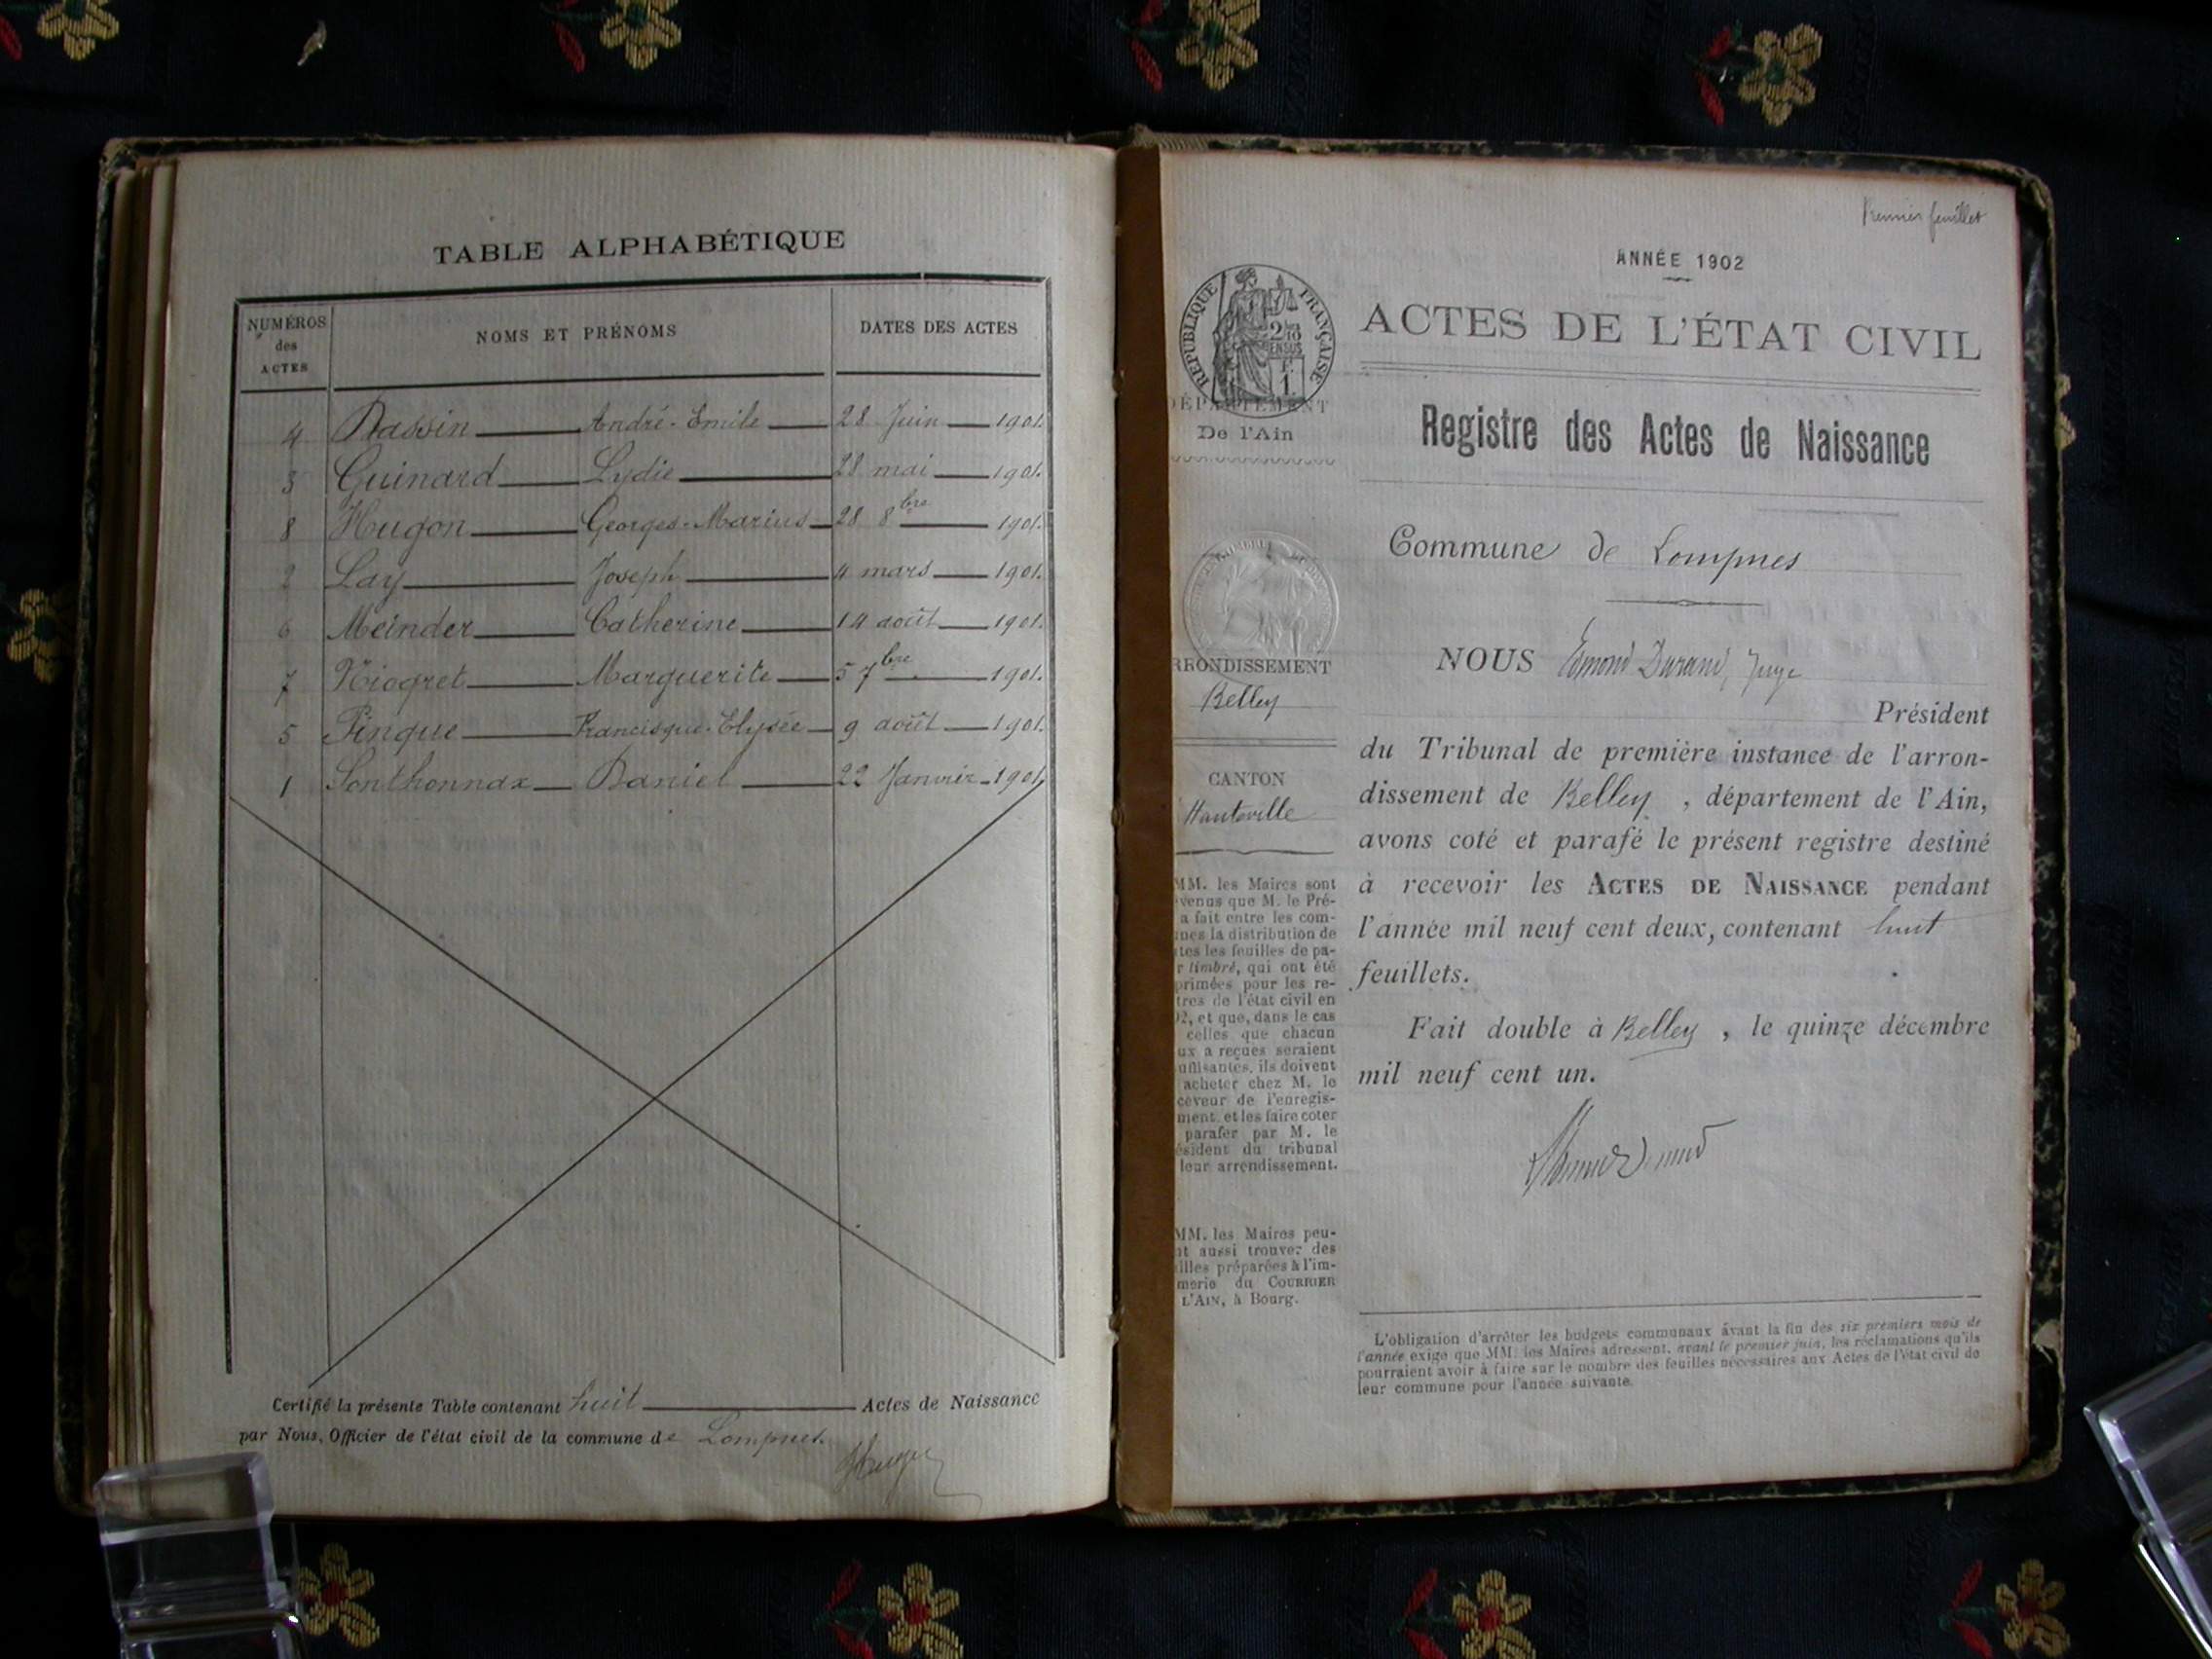 TABLE ALPHABÉTIQUE
NUMÉROS des ACTES
NOMS ET PRÉNOMS
DATES DES ACTES
4 Dassin André-Emile 28 Juin 1901.
3 Guinard Lydie 28 mai 1901.
8 Hugon Georges-Marius 28 8bre 1901.
2 Lay Joseph 4 mars 1901.
6 Meinder Catherine 14 août 1901.
7 Niogret Marguerite 5 7bre 1901.
5 Pinque Francisque-Elysée 9 août 1901.
1 Sonthonnax Daniel 22 Janvier 1901.
Certifié la présente Table contenant huit Actes de Naissance
par Nous, Officier de l'état civil de la commune de Lompnes.
Premier feuillet
ANNÉE 1902
ACTES DE L'ÉTAT CIVIL
Registre des Actes de Naissance
Commune de Lompnes
NOUS Edmond Durand, Juge
Président
du Tribunal de première instance de l'arron-
dissement de Belley, département de l'Ain,
avons coté et parafé le présent registre destiné
à recevoir les ACTES DE NAISSANCE pendant
l'année mil neuf cent deux, contenant huit
feuillets.
Fait double à Belley, le quinze décembre
mil neuf cent un.
L'obligation d'arrêter les budgets communaux avant la fin des six premiers mois de
l'année exige que MM. les Maires adressent, avant le premier juin, les réclamations qu'ils
pourraient avoir à faire sur le nombre des feuilles nécessaires aux Actes de l'état civil de
leur commune pour l'année suivante.
RÉPUBLIQUE FRANÇAISE
2/10 EN SUS
F. 1
DÉPARTEMENT
De l'Ain
RRONDISSEMENT
Belley
CANTON
Hauteville
MM. les Maires sont
venus que M. le Pré-
a fait entre les com-
nes la distribution de
tes les feuilles de pa-
r timbré, qui ont été
primées pour les re-
tres de l'état civil en
02, et que, dans le cas
celles que chacun
ux a reçues seraient
uffisantes, ils doivent
acheter chez M. le
ceveur de l'enregis-
ment, et les faire coter
parafer par M. le
ésident du tribunal
leur arrondissement.
MM. les Maires peu-
nt aussi trouver des
illes préparées à l'im-
merie du COURRIER
L'AIN, à Bourg.